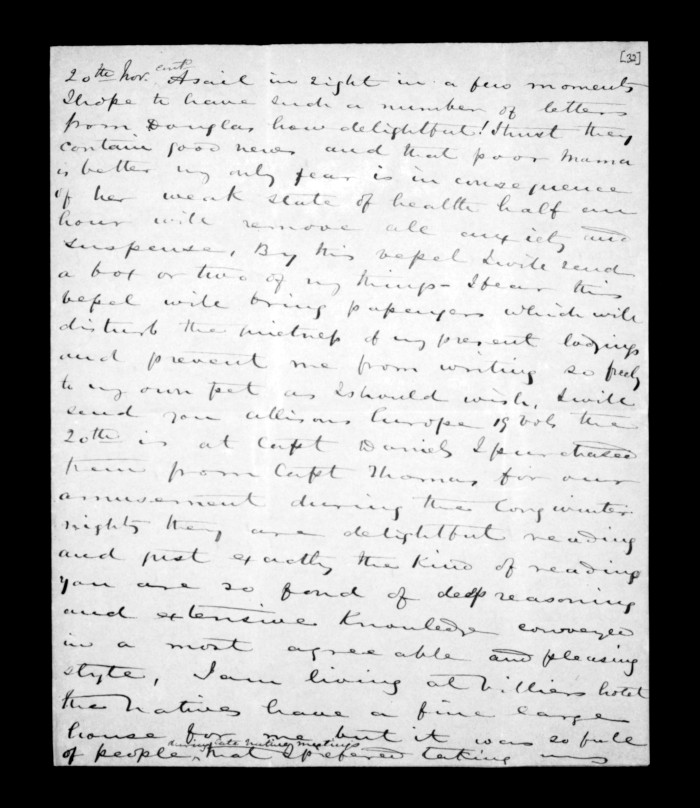 [32]
20th Nov. cont. A sail in sight in a few moments
I hope to have such a number of letters
from Douglas how delightful! I trust they
contain good news and that poor Mama
is better my only fear is in consequence
of her weak state of health half an
hour will remove all anxiety and
suspense, By this vessel I will send
a box or two of my things - I fear this
vessel will bring passengers which will
disturb the quietness of my present lodgings
and prevent me from writing so freely
to my own pet as I should wish, I will
send you Allisons Europe 19 vols the
20th is at Capt Daniels I purchased
them from Capt Thomas for our
amusement during the long winter
nights they are delightful reading
and just exactly the kind of reading
you are so fond of deep reasoning
and extensive Knowledge conveyed
in a most agreeable and pleasing
style, I am living at Villiers hotel
the Natives have a fine large
house for me but it was so full
during late native meetings
of people, that I prefered taking my